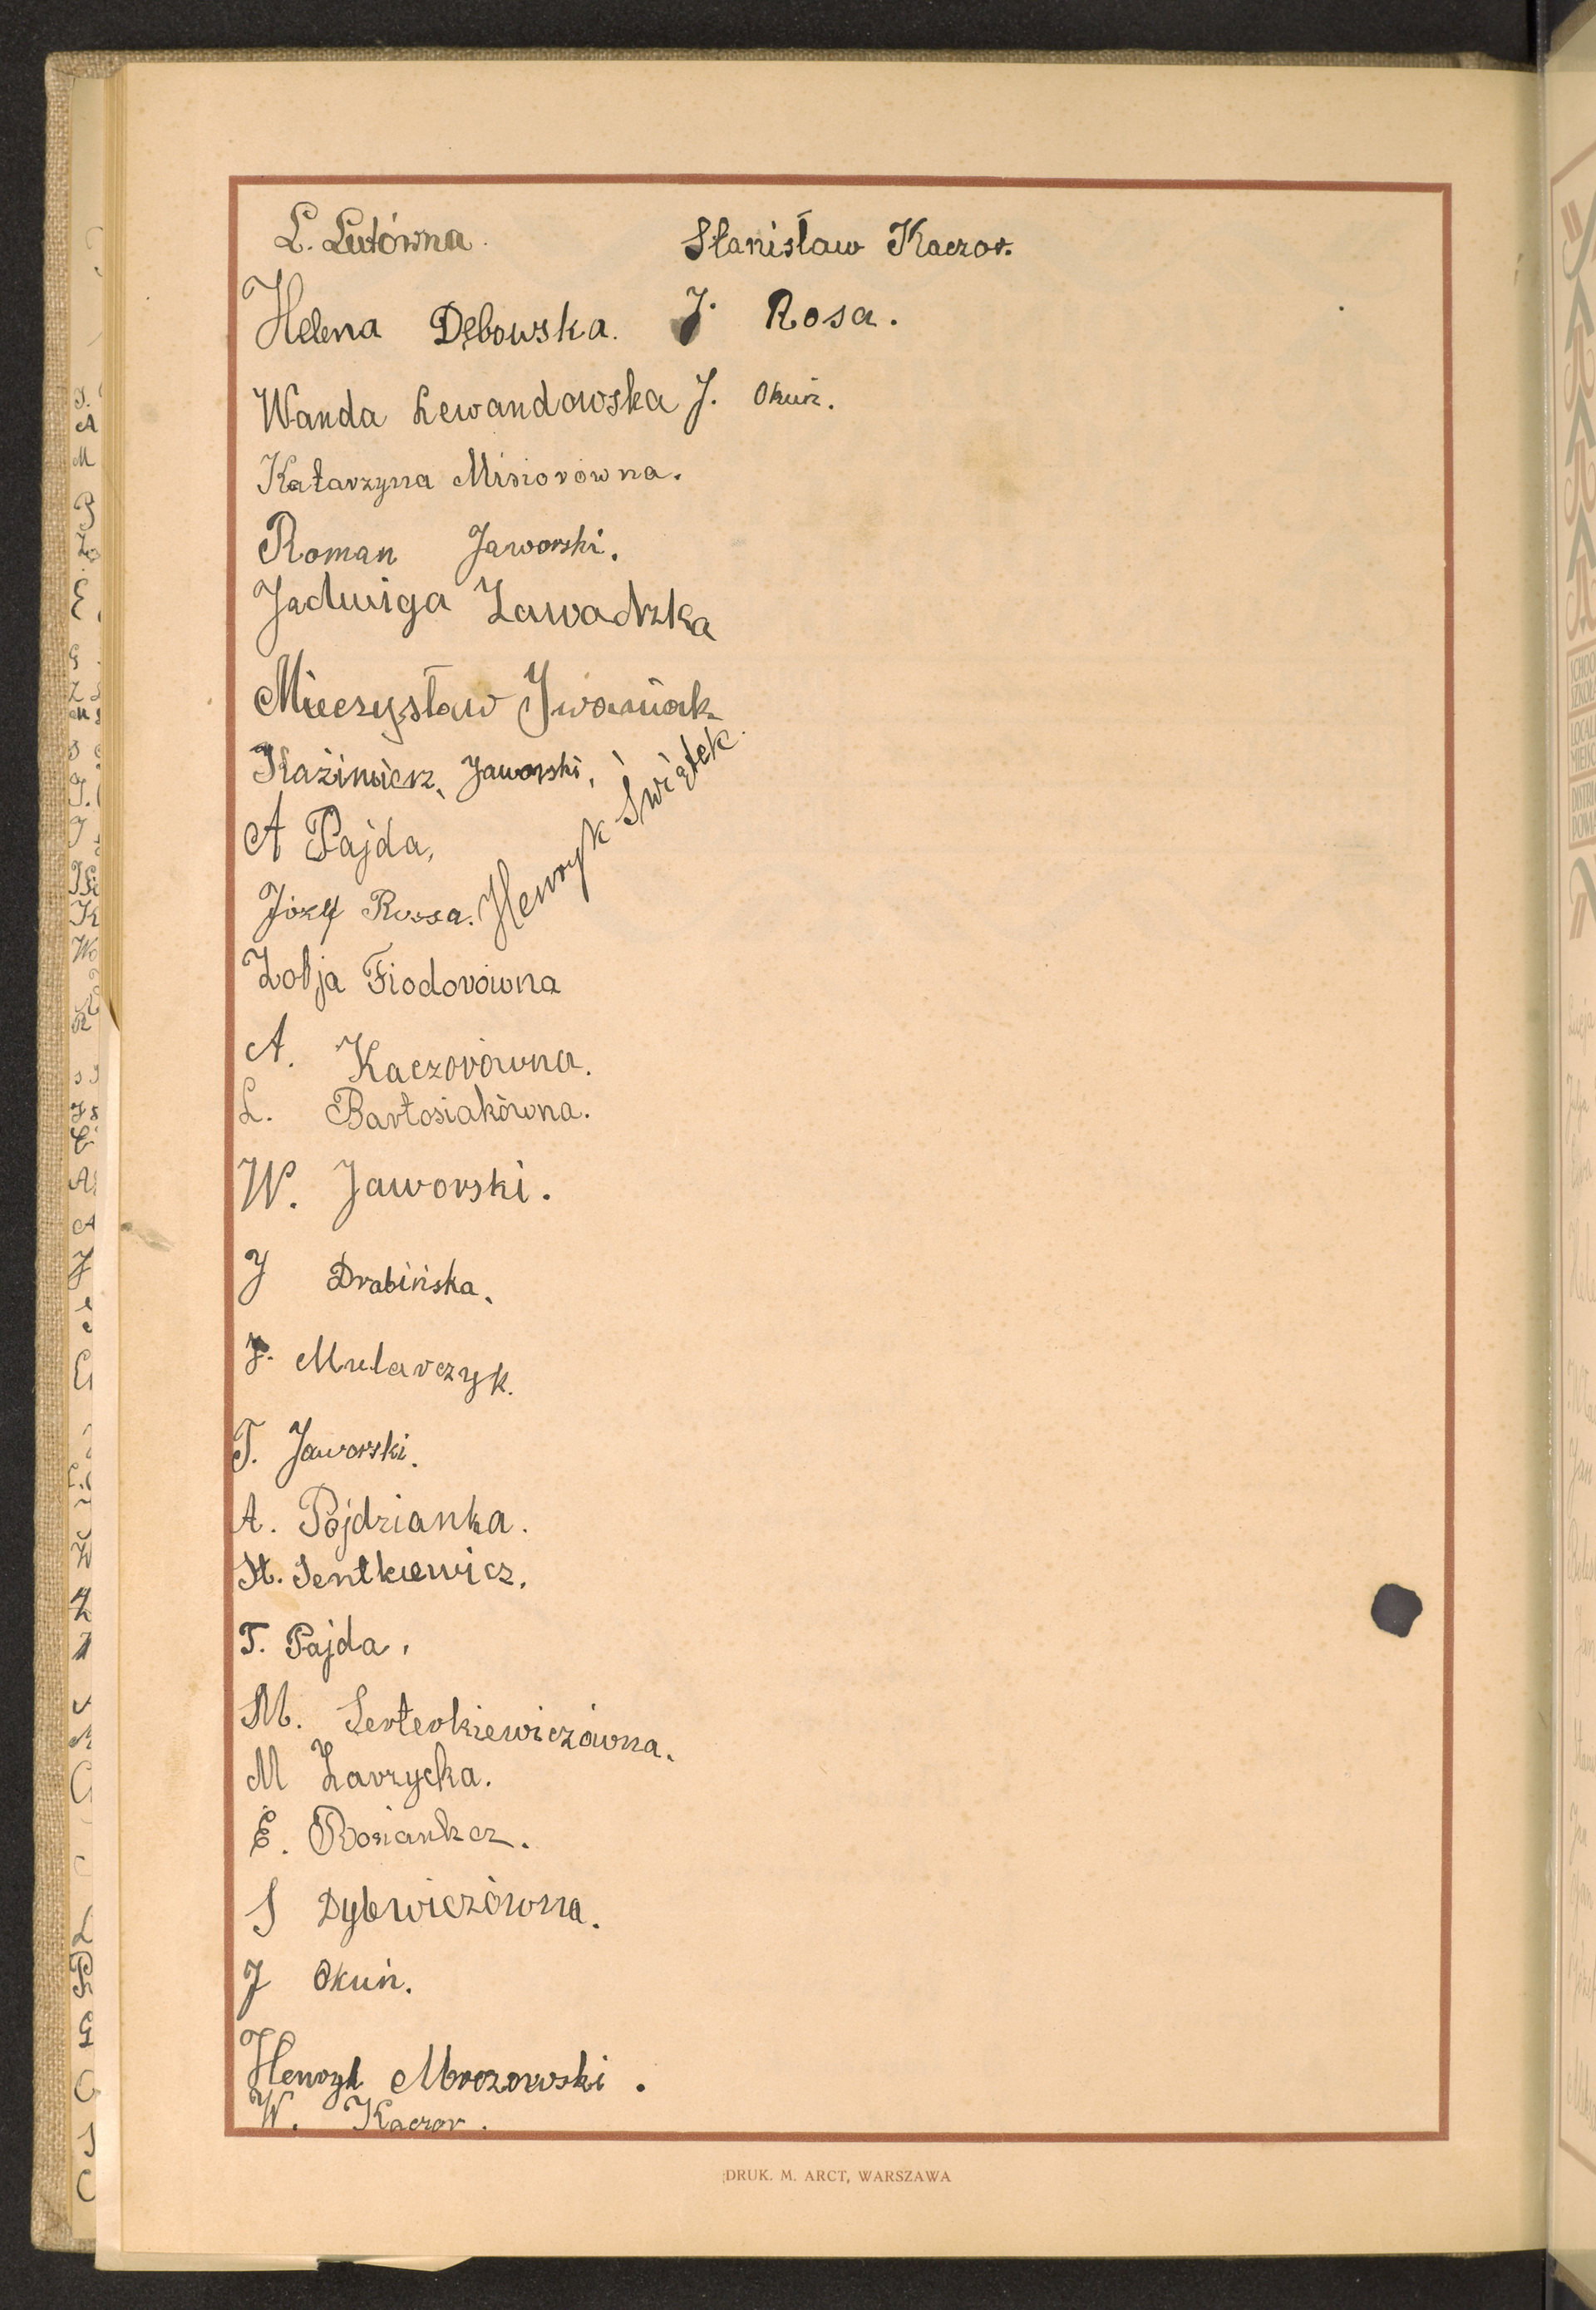 L. Lutówna.
Stanisław Kaczor.
Helena Dębowska.
J. Rosa.
Wanda Lewandowska
J. Okuń.
Katarzyna Misiorówna.
Roman Jaworski.
Jadwiga Zawadzka
Mieczysław Iwaniak
Kazimierz Jaworski,
Henryk Świątek.
A Pajda,
Józef Rossa.
Zofja Fiodorówna
A. Kaczorówna.
L. Bartosiakówna.
W. Jaworski.
J Drabińska.
J. Mularczyk.
T. Jaworski.
A. Pójdzianka.
St. Sentkiewicz.
T. Pajda.
M.
M Zavrycka.
E.
S Dybwiczówna.
J Okuń.
Henryk Mrozowski.
W. Kaczor.
DRUK. M. ARCT, WARSZAWA